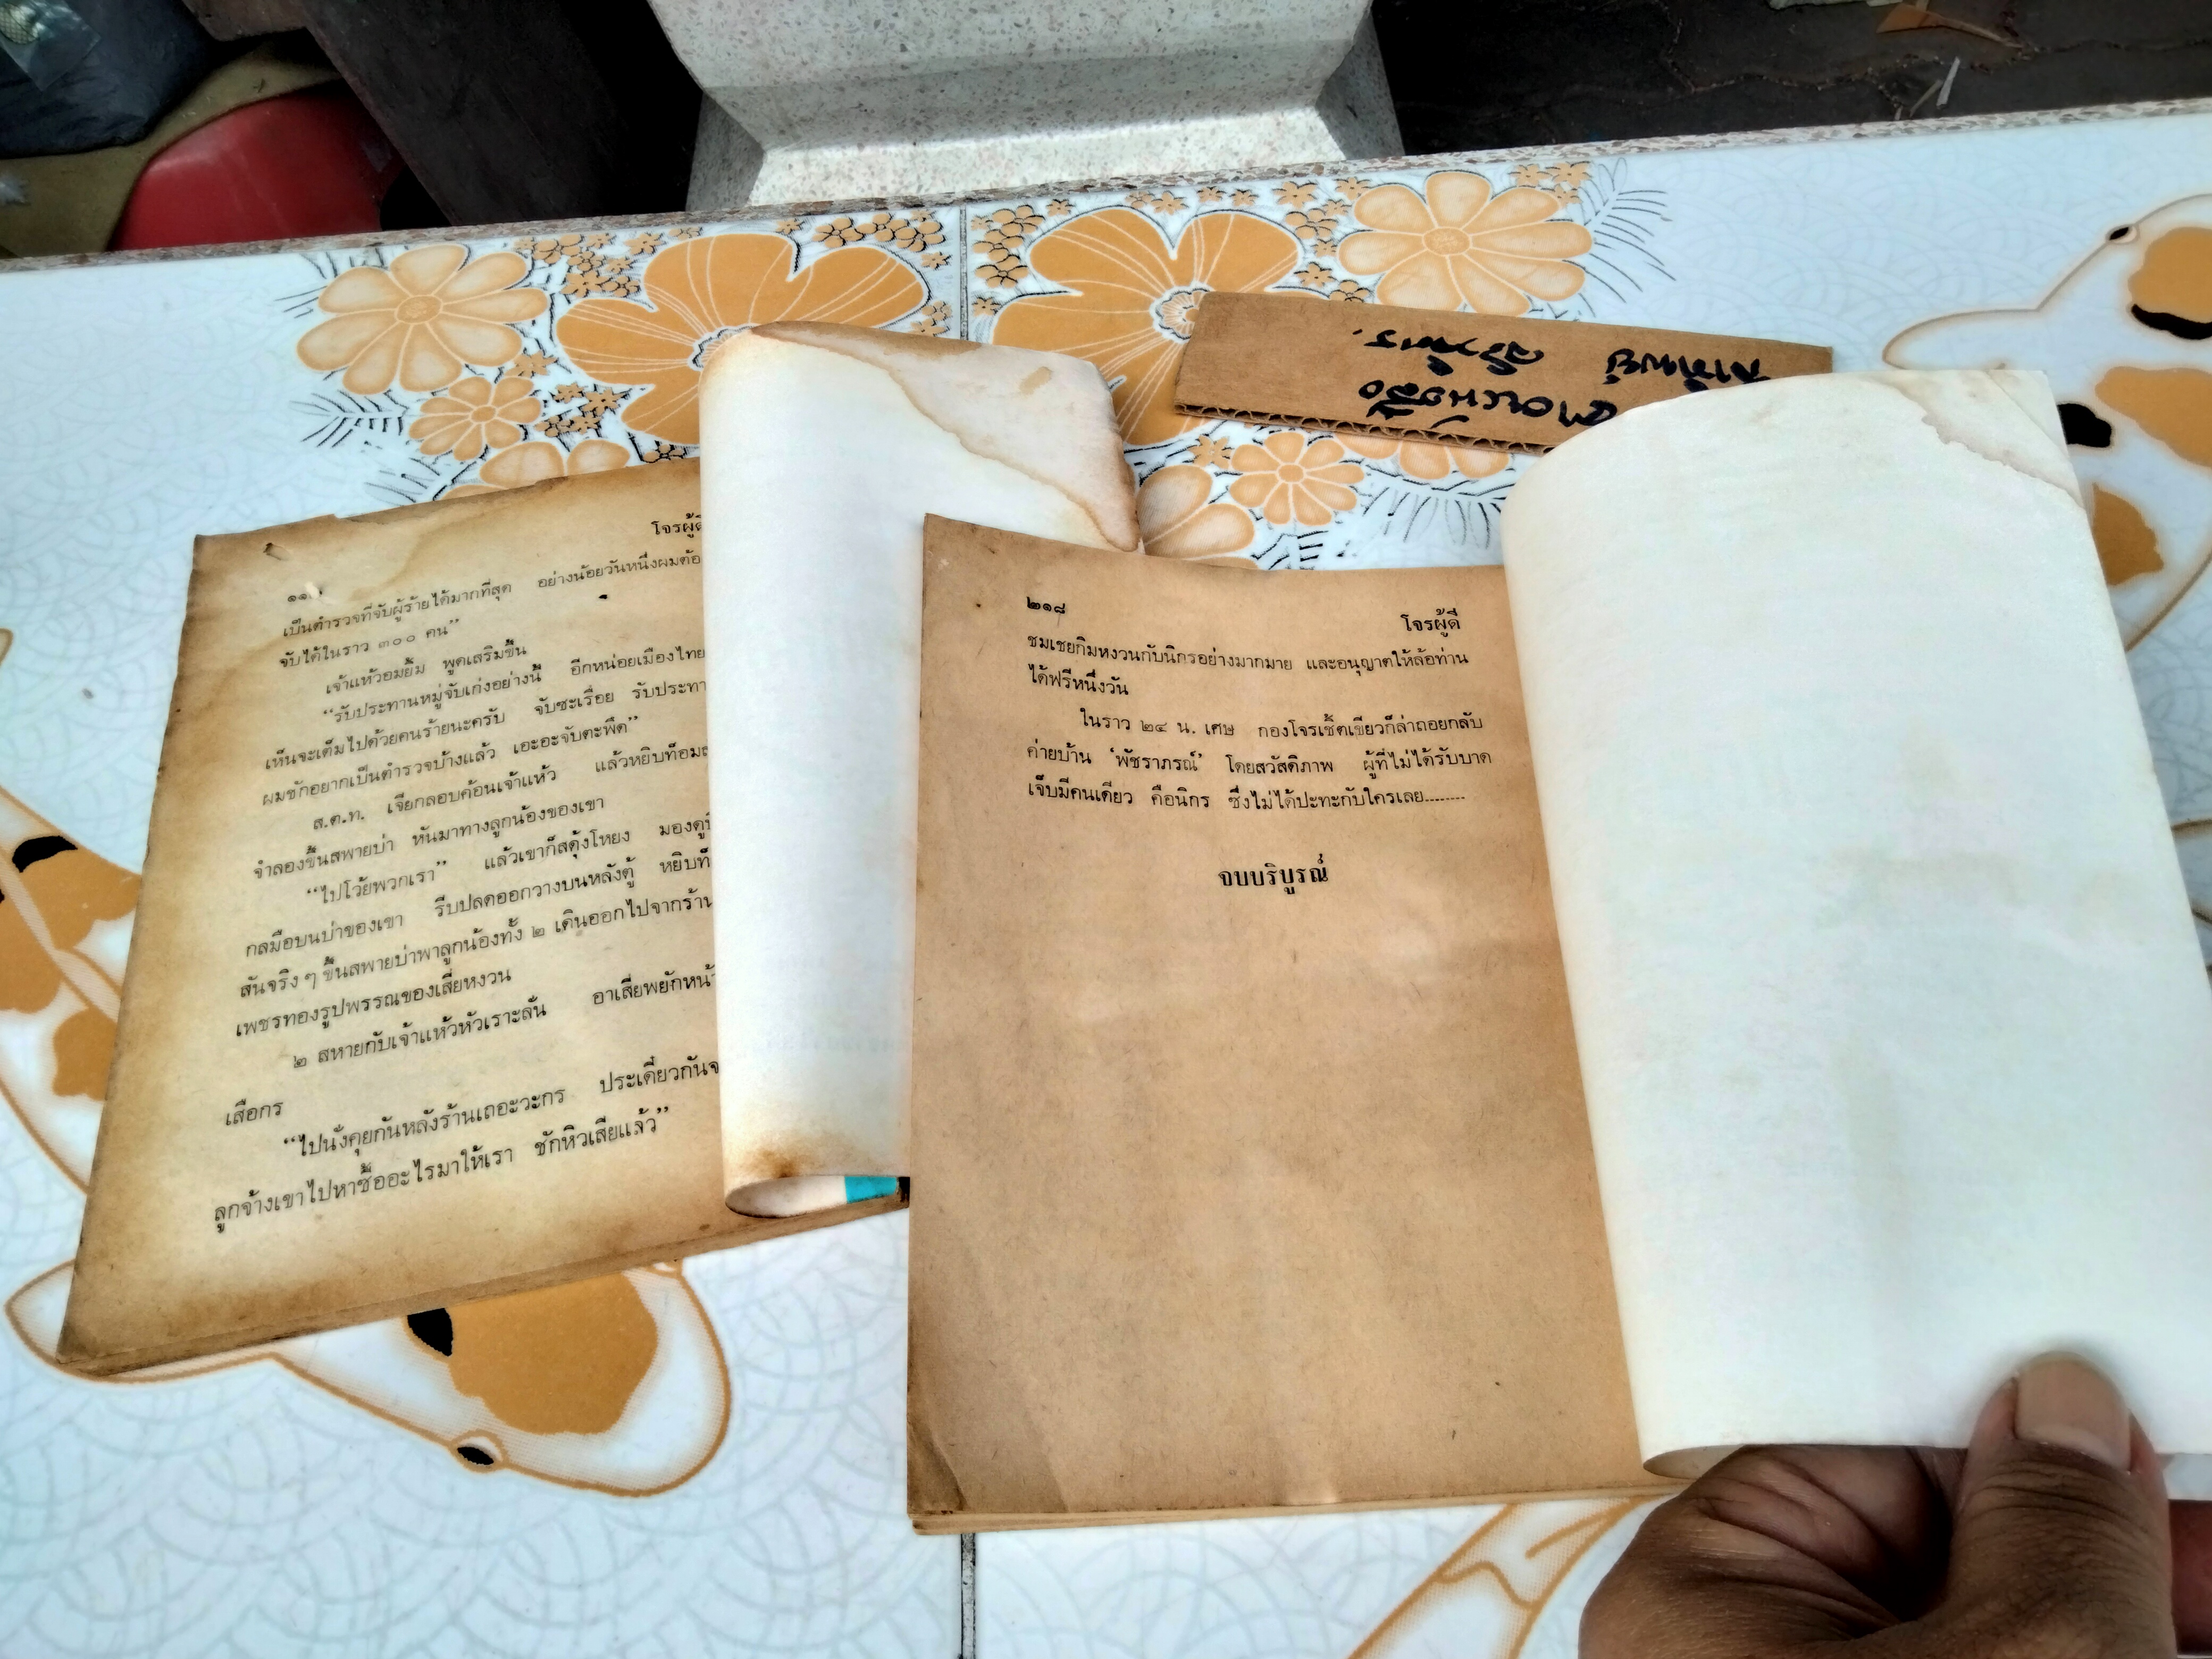 โจรผู้ดี
เป็นตำรวจที่จับผู้ร้ายได้มากที่สุด อย่างน้อยวันหนึ่งผมต้อ
จับได้ในราว ๓๐๐ คน”
เจ้าแห้วอมยิ้ม พูดเสริมขึ้น
“รับประทานหมู่จับเก่งอย่างนี้ อีกหน่อยเมืองไทย
เห็นจะเต็มไปด้วยคนร้ายนะครับ จับซะเรื่อย รับประทา
ผมชักอยากเป็นตำรวจบ้างแล้ว เอะอะจับตะพึด”
ส.ต.ท. เจียกลอบค้อนเจ้าแห้ว แล้วหยิบท็อมส
จำลองขึ้นสพายบ่า หันมาทางลูกน้องของเขา
“ไปโว้ยพวกเรา” แล้วเขาก็สดุ้งโหยง มองดู
กลมือบนบ่าของเขา รีบปลดออกวางบนหลังตู้ หยิบท็
สันจริง ๆ ขึ้นสพายบ่าพาลูกน้องทั้ง ๒ เดินออกไปจากร้าน
เพชรทองรูปพรรณของเสี่ยหงวน
๒ สหายกับเจ้าแห้วหัวเราะลั่น อาเสี่ยพยักหน้า
เสือกร
“ไปนั่งคุยกันหลังร้านเถอะวะกร ประเดี๋ยวกันจ
ลูกจ้างเขาไปหาซื้ออะไรมาให้เรา ชักหิวเสียแล้ว”
๒๑๘
โจรผู้ดี
ชมเชยกิมหงวนกับนิกรอย่างมากมาย และอนุญาตให้ล้อท่าน
ได้ฟรีหนึ่งวัน
ในราว ๒๔ น. เศษ กองโจรเช็ตเขียวก็ล่าถอยกลับ
ค่ายบ้าน ‘พัชราภรณ์’ โดยสวัสดิภาพ ผู้ที่ไม่ได้รับบาด
เจ็บมีคนเดียว คือนิกร ซึ่งไม่ได้ปะทะกับใครเลย........
จบบริบูรณ์